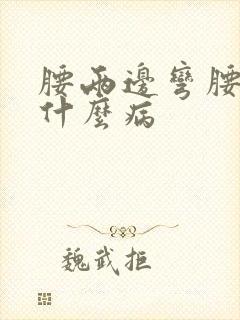 腰兩邊彎腰
什麼病
魏武拒